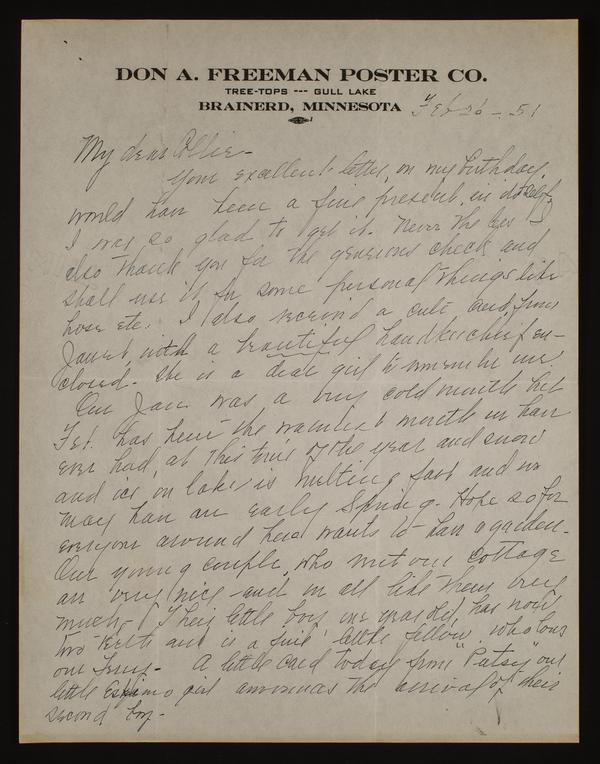 DON A. FREEMAN POSTER CO.
TREE-TOPS --- GULL LAKE
BRAINERD, MINNESOTA
Feb 26 - 51
My dear Ollie -
Your excellent letter, on my birthday,
would have been a fine present, in itself.
I was so glad to get it. Never the less I
also thank you for the generous check and
shall use it for some personal things like
hose etc. I also received a cute card, from
Janet with a beautiful handkerchief en-
closed. She is a dear girl to remember me.
Our Jan. was a very cold month but
Feb. has been the warmest month we have
ever had, at this time of the year and snow
and ice on lake is melting fast and we
may have an early Spring. Hope so for
everyone around here wants to have a garden.
Our young couple, who rent our cottage
are very nice and we all like them very
much. Their little boy one year old, has now
two teeth and is a fine little fellow who loves
our
A little card today from "Patsy" our
little Eskimo girl announces the arrival of their
second boy -